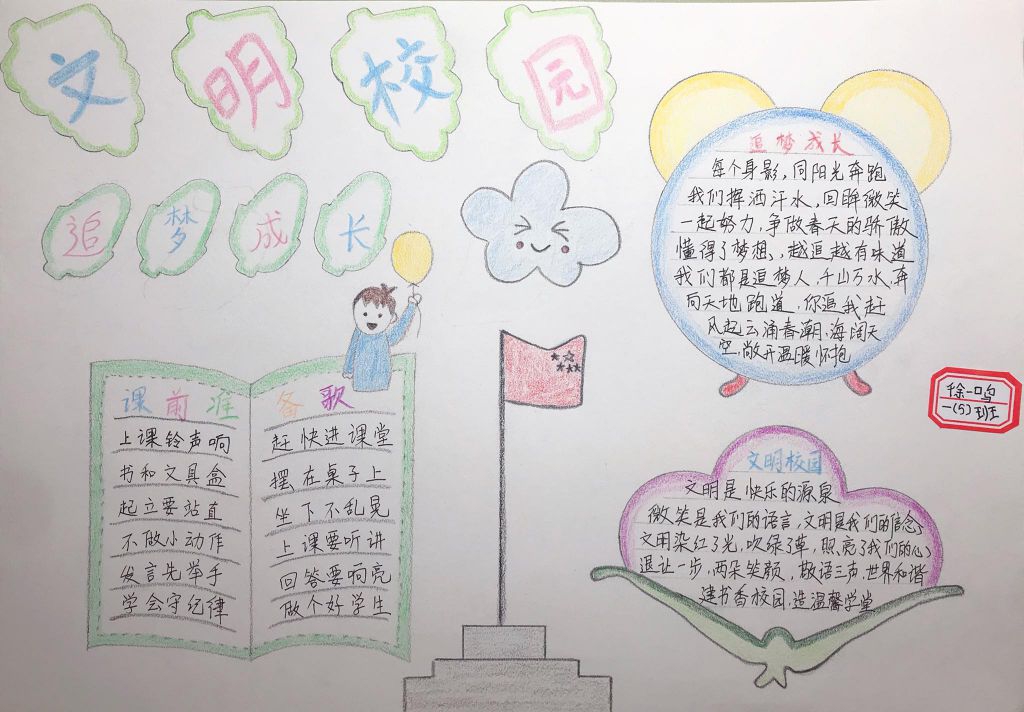 文明校园
追梦成长
追梦成长
每个身影,同阳光奔跑
我们挥洒汗水,回眸微笑
一起努力,争做春天的骄傲
懂得了梦想,,越追越有味道
我们都是追梦人,千山万水,奔
向天地跑道,你追我赶
风起云涌春潮,海阔天
空,敞开温暖怀抱
课前准备歌
上课铃声响 赶快进课堂
书和文具盒 摆在桌子上
起立要站直 坐下不乱晃
不做小动作 上课要听讲
发言先举手 回答要响亮
学会守纪律 做个好学生
徐一鸣
一(5)班
文明校园
文明是快乐的源泉
微笑是我们的语言,文明是我们的信念
文明染红了光,吹绿了草,照亮了我们的心
退让一步,两朵笑颜,敬语三声,世界和谐
建书香校园,造温馨学堂